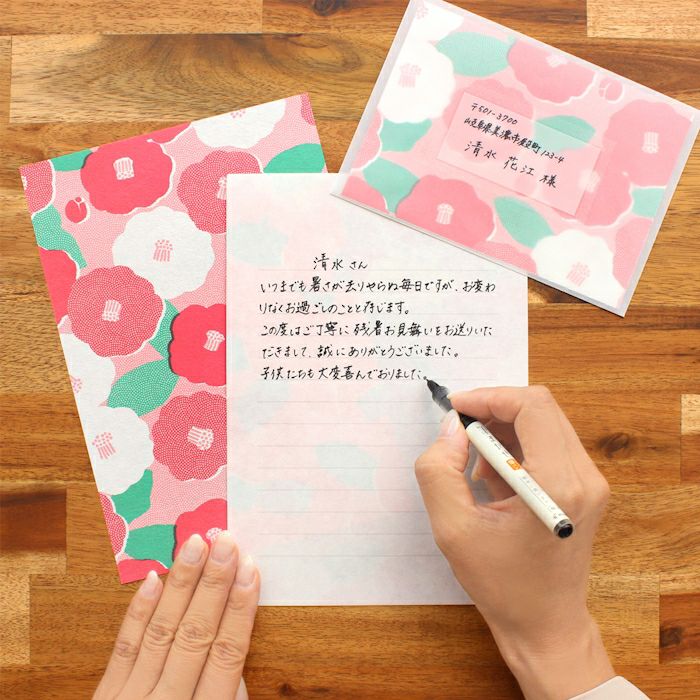 〒501-3700
岐阜県美濃市屋町123-4
清水 花江 様
清水さん
いつまでも暑さが去りやらぬ毎日ですが、お変わ
りなくお過ごしのことと存じます。
この度はご丁寧に残暑お見舞いをお送りいた
だきまして、誠にありがとうございました。
子供たちも大変喜んでおりました。